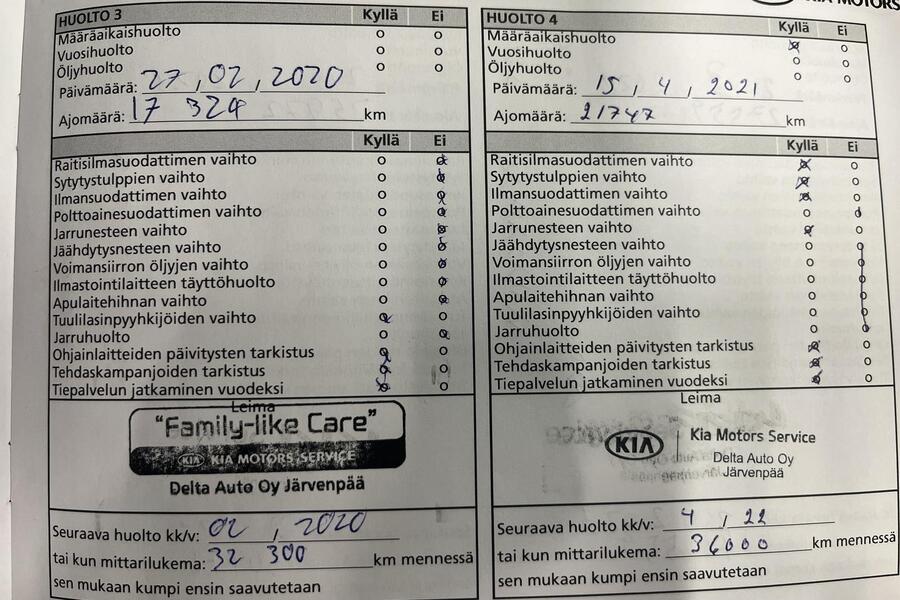 HUOLTO 3 Kyllä Ei
Määräaikaishuolto o o
Vuosihuolto o o
Öljyhuolto o o
Päivämäärä: 27, 02, 2020
Ajomäärä: 17 324 km
Kyllä Ei
Raitisilmasuodattimen vaihto o
Sytytystulppien vaihto o
Ilmansuodattimen vaihto o
Polttoainesuodattimen vaihto o
Jarrunesteen vaihto o
Jäähdytysnesteen vaihto o
Voimansiirron öljyjen vaihto o
Ilmastointilaitteen täyttöhuolto o
Apulaitehihnan vaihto o
Tuulilasinpyyhkijöiden vaihto o
Jarruhuolto o
Ohjainlaitteiden päivitysten tarkistus o
Tehdaskampanjoiden tarkistus o
Tiepalvelun jatkaminen vuodeksi o
Leima
"Family-like Care"
KIA KIA MOTORS SERVICE
Delta Auto Oy Järvenpää
Seuraava huolto kk/v: 02, 2020
tai kun mittarilukema: 32 300 km mennessä
sen mukaan kumpi ensin saavutetaan
KIA MOTORS
HUOLTO 4 Kyllä Ei
Määräaikaishuolto o
Vuosihuolto o o
Öljyhuolto o o
Päivämäärä: 15, 4, 2021
Ajomäärä: 21747 km
Kyllä Ei
Raitisilmasuodattimen vaihto o
Sytytystulppien vaihto o
Ilmansuodattimen vaihto o
Polttoainesuodattimen vaihto o
Jarrunesteen vaihto o
Jäähdytysnesteen vaihto o
Voimansiirron öljyjen vaihto o
Ilmastointilaitteen täyttöhuolto o
Apulaitehihnan vaihto o
Tuulilasinpyyhkijöiden vaihto o
Jarruhuolto o
Ohjainlaitteiden päivitysten tarkistus o
Tehdaskampanjoiden tarkistus o
Tiepalvelun jatkaminen vuodeksi o
Leima
KIA Kia Motors Service
Delta Auto Oy
Järvenpää
Seuraava huolto kk/v: 4 / 22
tai kun mittarilukema: 36000 km mennessä
sen mukaan kumpi ensin saavutetaan